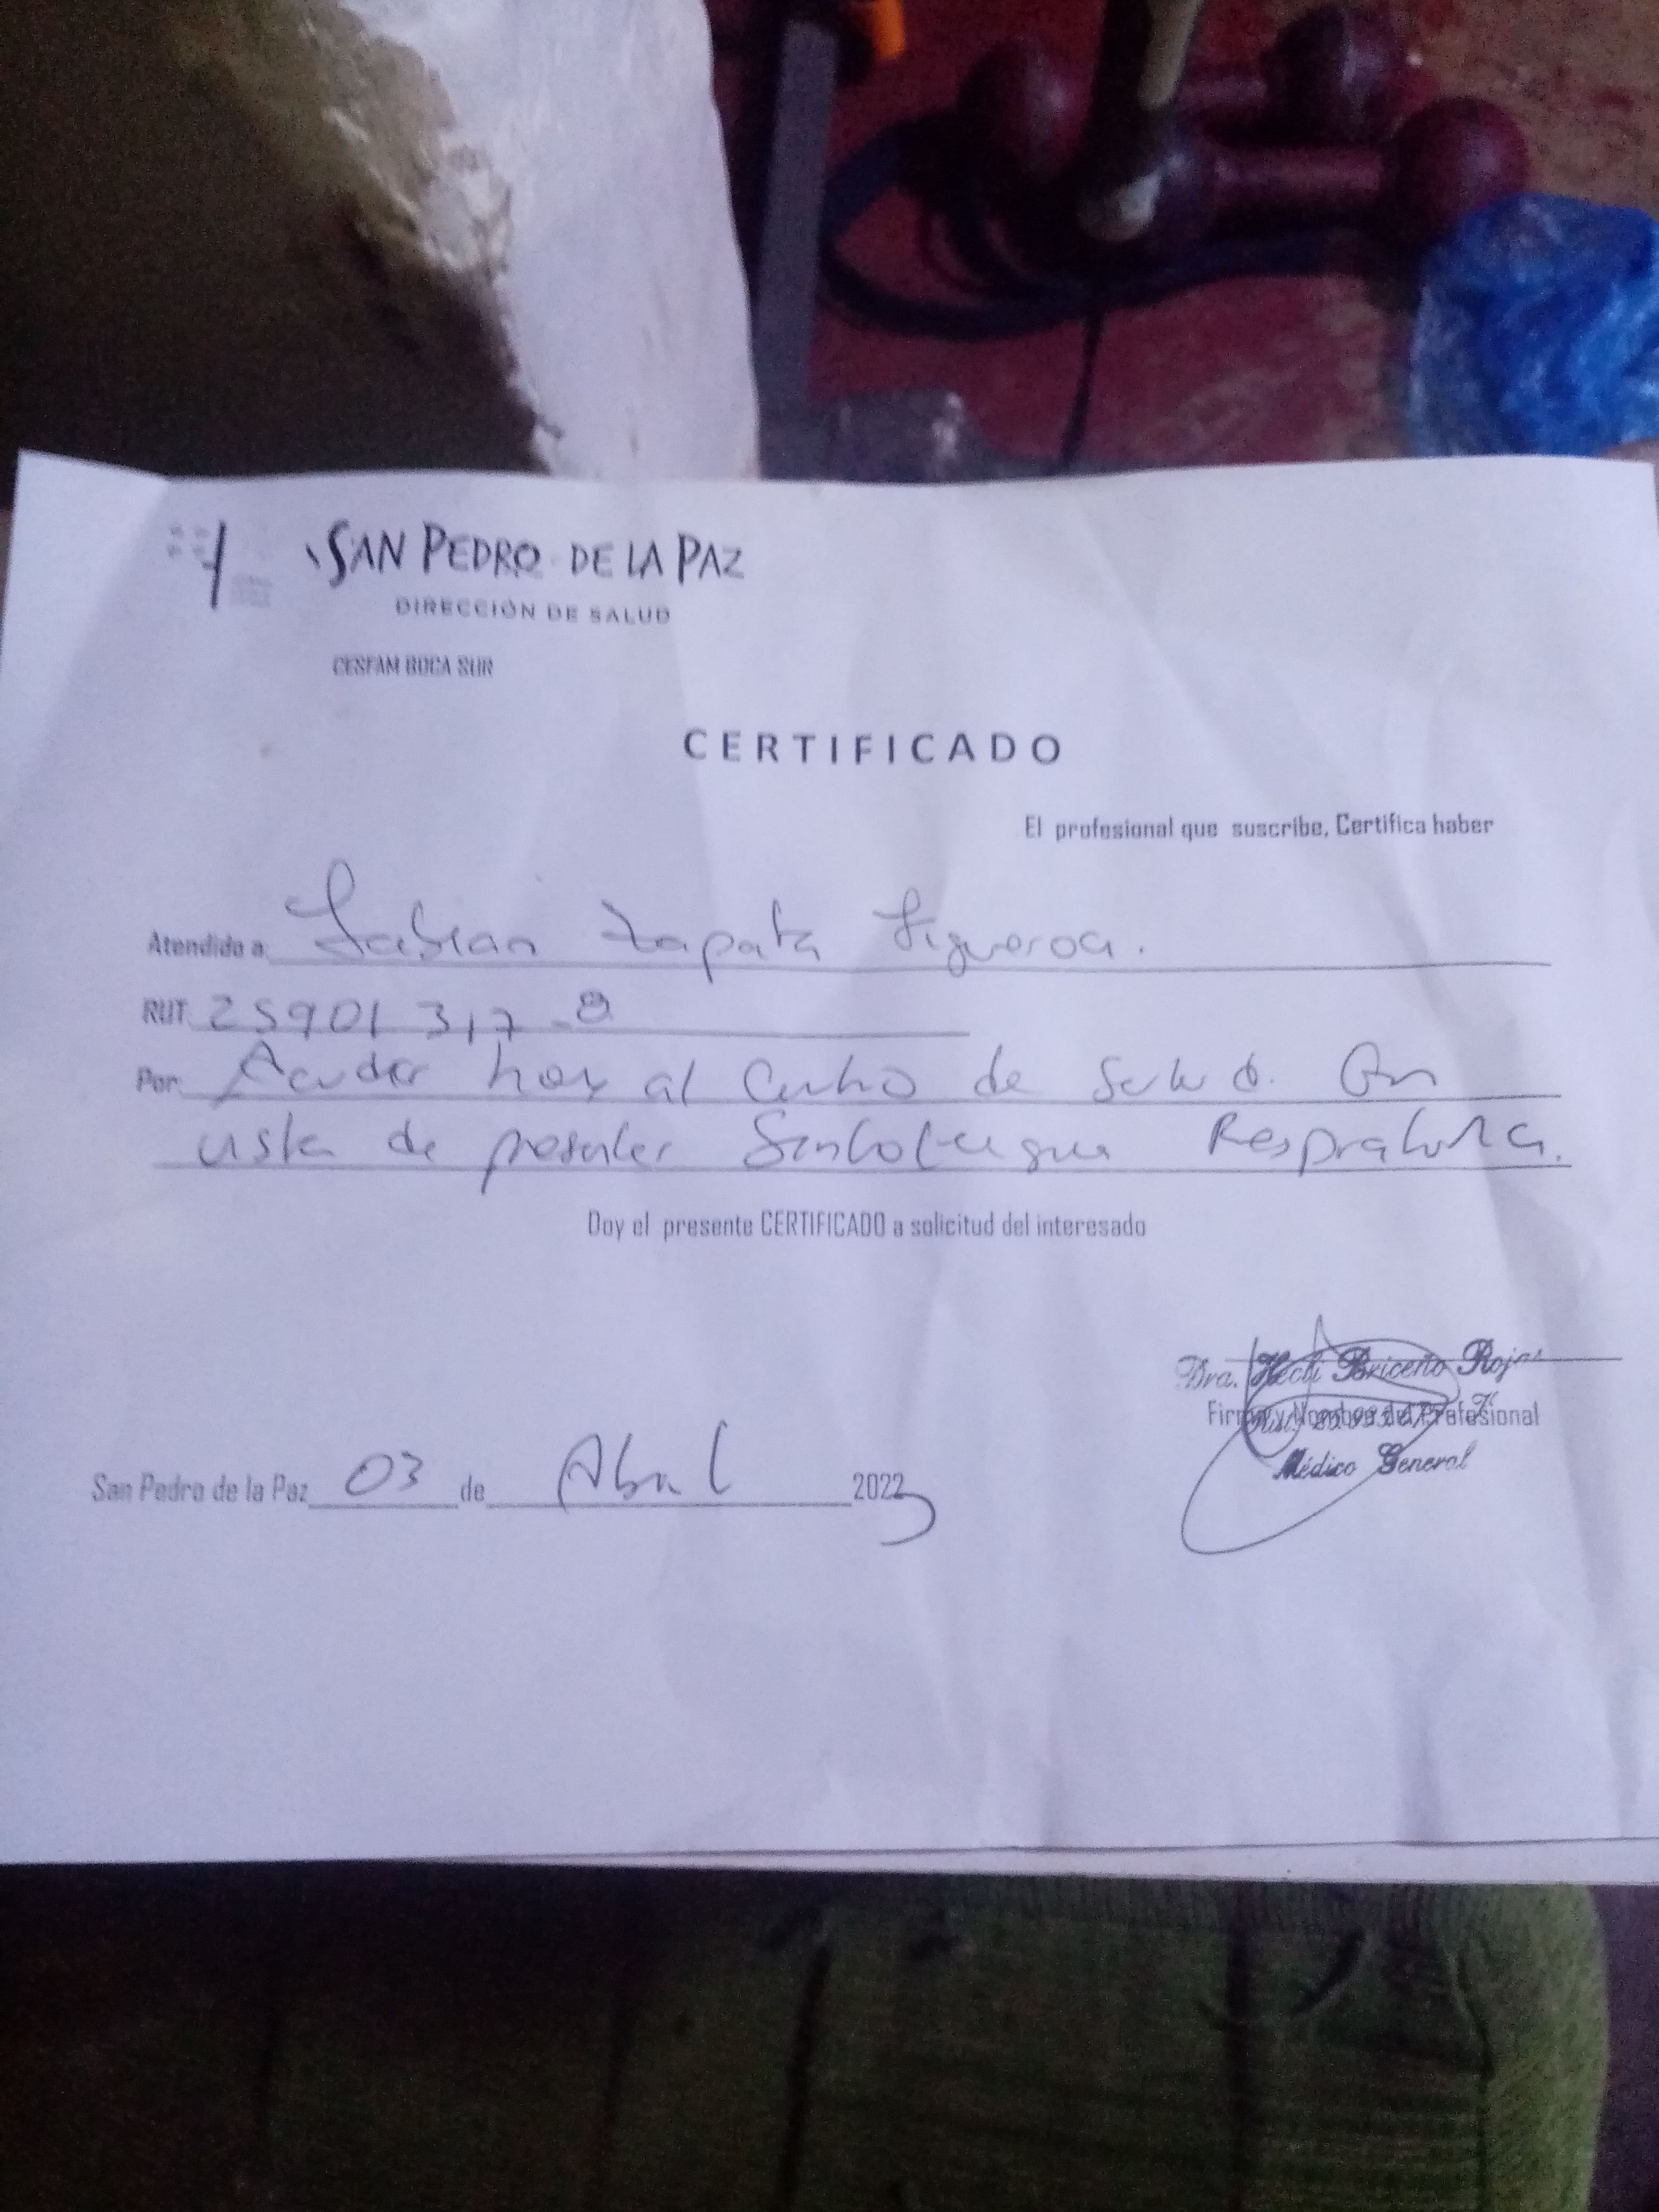 SAN PEDRO DE LA PAZ
DIRECCIÓN DE SALUD
CESFAM BOCA SUR
CERTIFICADO
El profesional que suscribe, Certifica haber
Atendido a: Fabian Zapata Figueroa.
RUT 25901317-8
Por: Acudir hoy al Centro de Salud. En
vista de presentar Sintomatologia Respiratoria.
Doy el presente CERTIFICADO a solicitud del interesado
Dra. Briceño Rojas
Firma y Nombre del Profesional
Médico General
San Pedro de la Paz 03 de Abril 2023